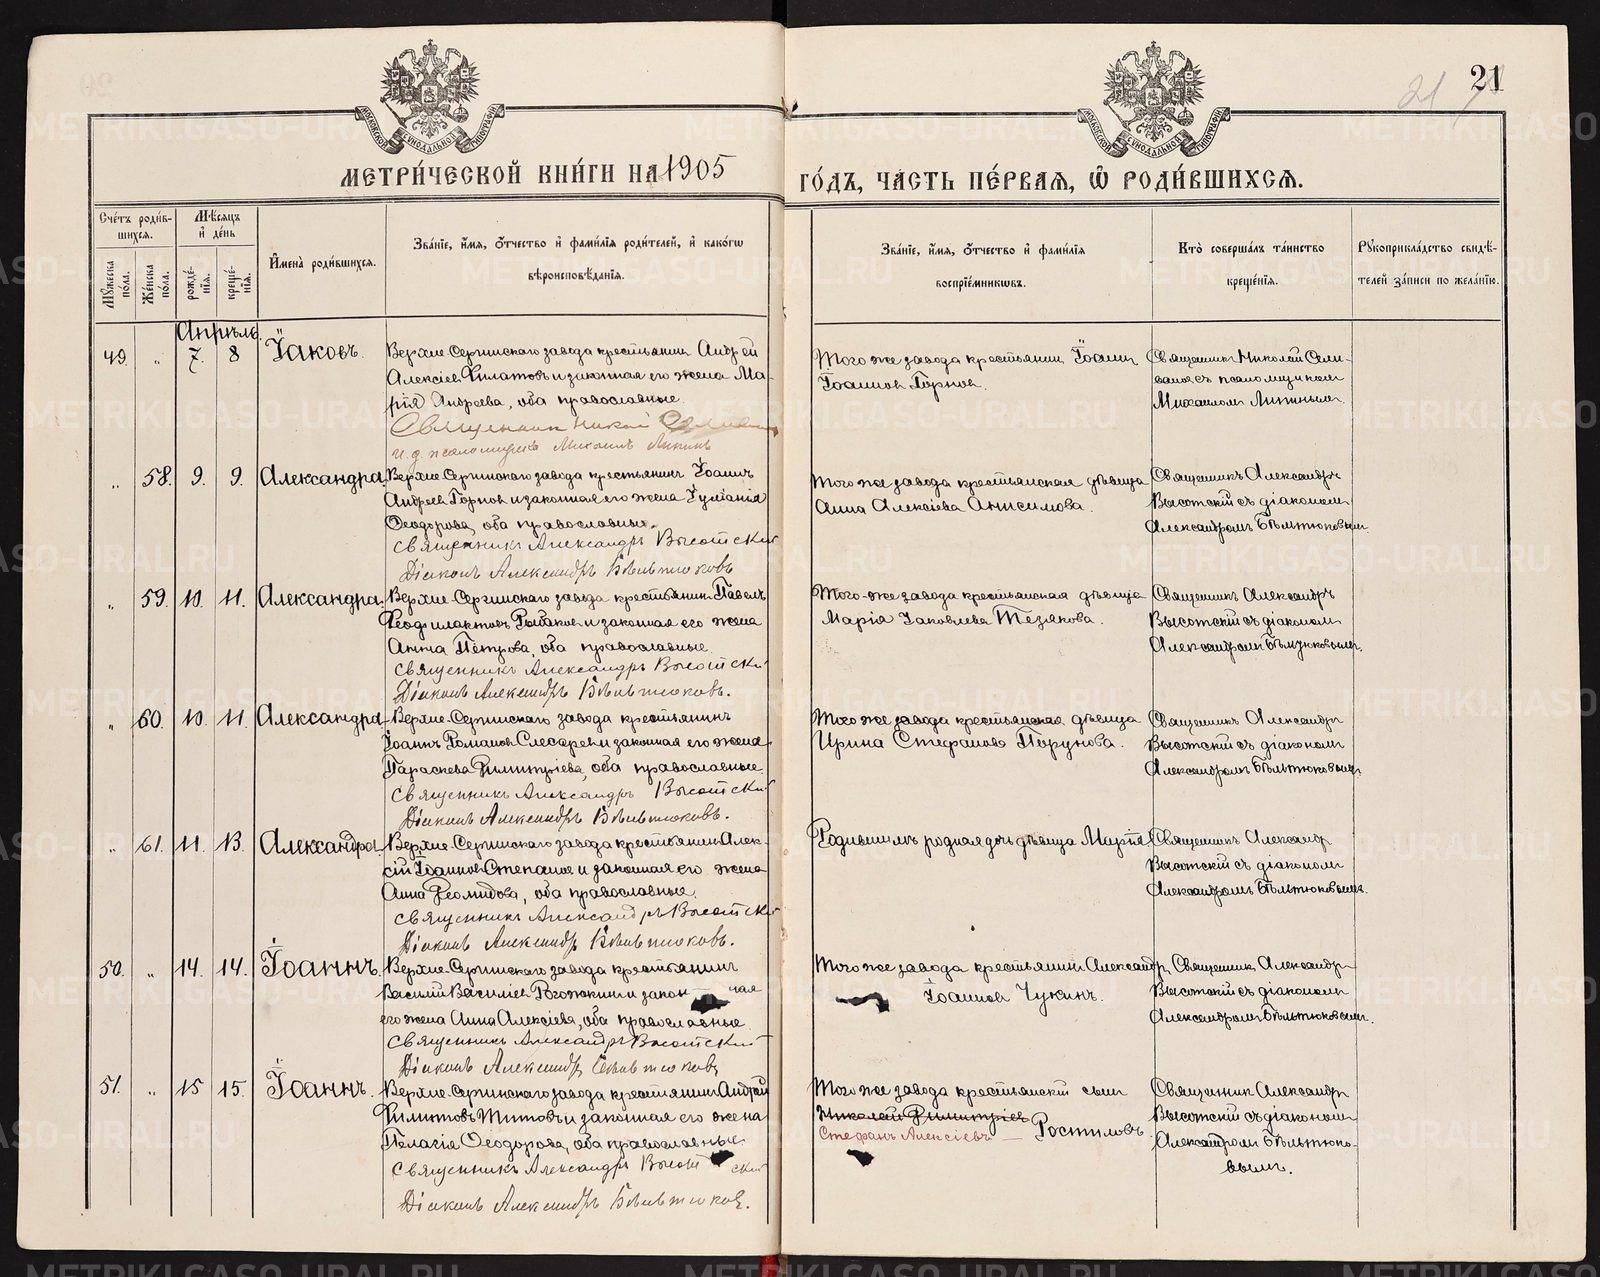 21
МОСКОВСКОЙ СѴНОДАЛЬНОЙ ТИПОГРАФІИ
МОСКОВСКОЙ СѴНОДАЛЬНОЙ ТИПОГРАФІИ
МЕТРИ́ЧЕСКОЙ КНИ́ГИ НА 1905 ГО́ДЪ, ЧА́СТЬ ПЕ́РВАѦ, Ѽ РОДИ́ВШИХСѦ.
Сче́тъ роди́в-
шихсѧ.
Мѣ́сѧцъ
и҆ де́нь
Мꙋ́жеска
по́ла.
Же́нска
по́ла.
рожде́-
нїѧ.
креще́-
нїѧ.
И҆мена̀ роди́вшихсѧ.
Зва́нїе, и҆́мѧ, ѻ҆́тчество и҆ фами́лїѧ роди́телей, и҆ како́гѡ
вѣроисповѣ́данїѧ.
Зва́нїе, и҆́мѧ, ѻ҆́тчество и҆ фами́лїѧ
воспрїе́мникѡвъ.
Кто̀ соверша́лъ та́инство
креще́нїѧ.
Рꙋкоприкла́дство свидѣ́-
телей за́писи по жела́нїю.
Апрѣль
49. „ 7. 8 Іаковъ.
Верхне-Сергинскаго завода крестьянинъ Андрей
Алексіевъ Филатовъ и законная его жена Ма-
рія Андреева, оба православные.
Священникъ Николай
и. д. псаломщика Михаилъ
Того же завода крестьянинъ Іоаннъ
Іоанновъ Горновъ.
Священникъ Николай Сели-
вановъ съ псаломщикомъ
Михаиломъ
„ 58. 9. 9. Александра
Верхне-Сергинскаго завода крестьянинъ Іоаннъ
Андреевъ Горновъ и законная его жена Іуліанія
Ѳеодорова, оба православные.
Священникъ Александръ Высотскій
Діаконъ Александръ Бѣльтюковъ
Того же завода крестьянская дѣвица
Анна Алексіева Анисимова.
Священникъ Александръ
Высотскій съ діакономъ
Александромъ Бѣльтюковымъ.
„ 59. 10. 11. Александра.
Верхне-Сергинскаго завода крестьянинъ Павелъ
Ѳеофилактовъ Рыбаковъ и законная его жена
Анна Петрова, оба православные
Священникъ Александръ Высотскій
Діаконъ Александръ Бѣльтюковъ.
Того-же завода крестьянская дѣвица
Марія Іаковлева Тезякова.
Священникъ Александръ
Высотскій съ діакономъ
Александромъ Бѣльтюковымъ.
„ 60. 10. 11. Александра
Верхне-Сергинскаго завода крестьянинъ
Іоаннъ Романовъ Слесаревъ и законная его жена
Параскева Димитріева, оба православные.
Священникъ Александръ Высотскій
Діаконъ Александръ Бѣльтюковъ.
Того же завода крестьянская дѣвица
Ирина Стефанова Порунова.
Священникъ Александръ
Высотскій съ діакономъ
Александромъ Бѣльтюковымъ.
„ 61. 11. 13. Александра.
Верхне-Сергинскаго завода крестьянинъ Алек-
сій Іоанновъ Степановъ и законная его жена
Анна Діомидова, оба православные.
Священникъ Александръ Высотскій
Діаконъ Александръ Бѣльтюковъ.
родная дочь дѣвица Марія
Священникъ Александръ
Высотскій съ діакономъ
Александромъ Бѣльтюковымъ.
50. „ 14. 14. Іоаннъ.
Верхне-Сергинскаго завода крестьянинъ
Василій Василіевъ Рогожкинъ и закон- ная
его жена Анна Алексіева, оба православные.
Священникъ Александръ Высотскій
Діаконъ Александръ Бѣльтюковъ
Того же завода крестьянинъ Александръ
Іоанновъ Чукинъ.
Священникъ Александръ
Высотскій съ діакономъ
Александромъ Бѣльтюковымъ.
51. „ 15 15. Іоаннъ.
Верхне-Сергинскаго завода крестьянинъ Андрей
Филиповъ Титовъ и законная его жена
Пелагія Ѳеодорова, оба православные.
Священникъ Александръ Высотскій
Діаконъ Александръ Бѣльтюковъ.
Того же завода крестьянскій сынъ
Николай Димитріевъ
Стефанъ Алексіевъ — Ростиловъ
Священникъ Александръ
Высотскій съ діакономъ
Александромъ Бѣльтюко-
вымъ.
METRIKI.GASO-URAL.RU